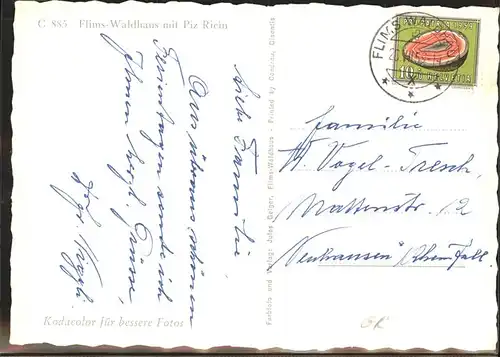 C 885 Flims-Waldhaus mit Piz Riein
Liebe Familie,
Aus schönen
Ferientagen sende ich
Ihnen herzl. Grüsse,
Kodacolor für bessere Fotos
Farbfoto und Verlag: Jules Geiger, Flims-Waldhaus - Printed by
FLIMS
10 HELVETIA
Familie
Vogel-Tresch,
Mattenstr. 12
Neuhausen / Rheinfall.